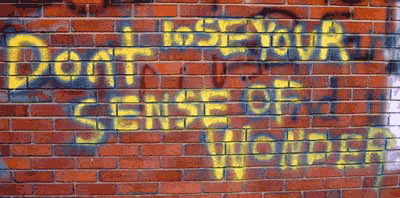 Dont lOSE YOUR
SENSE OF
WONDER